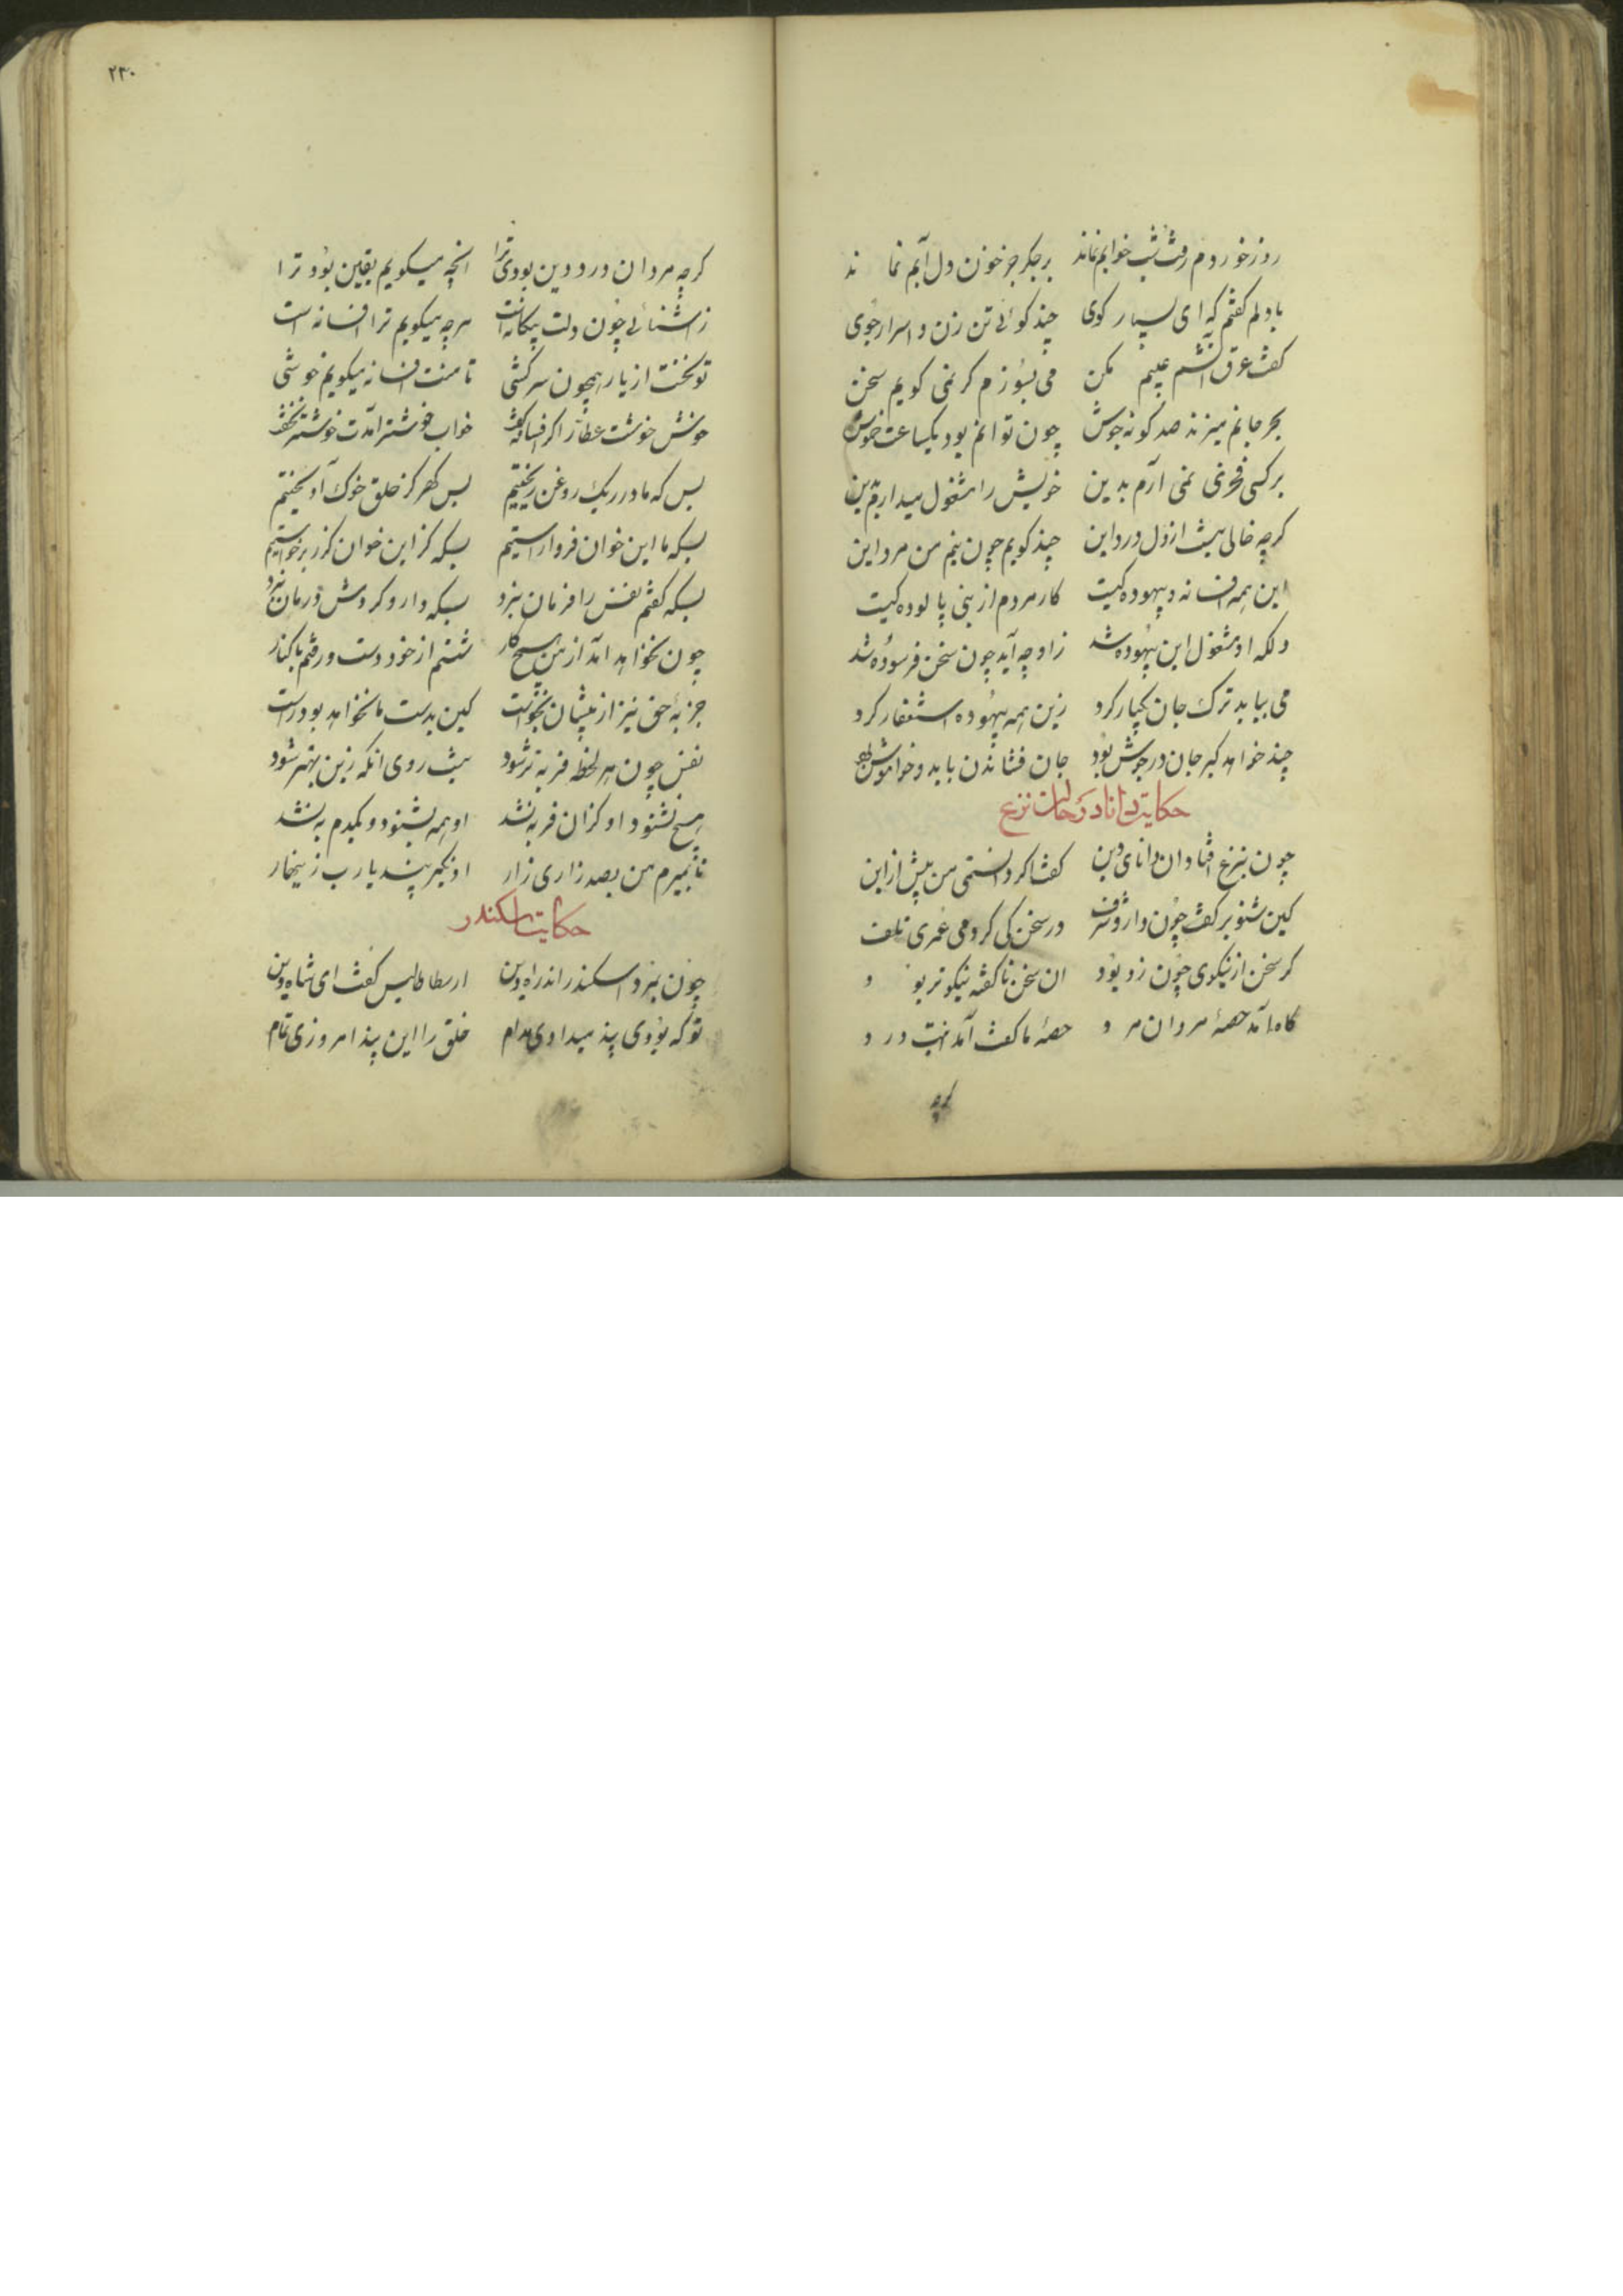 روز خوردم رفت شب خوابم نماند برجگر جز خون دل آبم نماند
بادلم کفتم که ای بسیار کوی چند کوئی تن زن و اسرار جوی
کفت غرق آتشم عیبم مکن می بسوزم کر نمی کویم سخن
بحر جانم میزند صد کونه جوش چون توانم بود یکساعت خموش
برکسی فخری نمی آرم بدین خویش را مشغول میدارم بدین
کرچه خالی نیست از دل درد این چند کویم چون نیم من مرد این
این همه افسانه و بیهوده کیست کار مردم از منی پالوده کیست
دلکه او مشغول این بیهوده شد زاو چه آید چون سخن فرسوده شد
می بیاید ترک جان یکبار کرد زین همه بیهوده استغفار کرد
چند خواهد کبر جان در جوش بود جان فشاندن باید و خاموش بود
حکایت دانا در حالت نزع
چون بنزع افتاد آن دانای دین کفت اکر دانستمی من پیش ازاین
کین شنو بر کفت چون دارد شرف در سخن کی کردمی عمری تلف
کر سخن از نیکوی چون زر بود ان سخن ناکفته نیکوتر بود
کار آمد حصهٔ مردان مرد حصهٔ ما کفت آمد اینت درد
کرچه
۲۳۰
کرچه مردان درد دین بودی ترا انچه میکویم یقین بود ترا
ز آشنائی چون دلت بیکانه است هرچه میکویم ترا افسانه است
تو بخفت از یار همچون سرکشی تا منت افسانه میکویم خوشی
خوش خوشت عطار اکر افسانه کفت خواب خوشتر آمدت خوشتر بخفت
بس که ما در ریک روغن ریختیم بس کهر کز حلق خوک آویختیم
بسکه ما این خوان فرو آراستیم بسکه کز این خوان کرز برخواستیم
بسکه کفتم نفس را فرمان نبرد بسکه دارو کردمش درمان نبرد
چون نخواهد آمد از من هیچ کار شستم از خود دست و رفتم با کنار
جذبهٔ حق نیز از پیشان نخواست کین بدست ما نخواهد بود راست
نفس چون هر لحظه فربه تر شود نیست روی انکه زین بهتر شود
هیچ نشنود او کزان فربه نشد او همه بشنود و یکدم به نشد
تا نمیرم من بصد زاری زار او نکیرد پند یارب زینهار
حکایت اسکندر
چون بمرد اسکندر اندر راه دین ارسطاطالیس کفت ای شاه دین
تو که بودی پند میدادی مدام خلق را این پند امروزی تمام